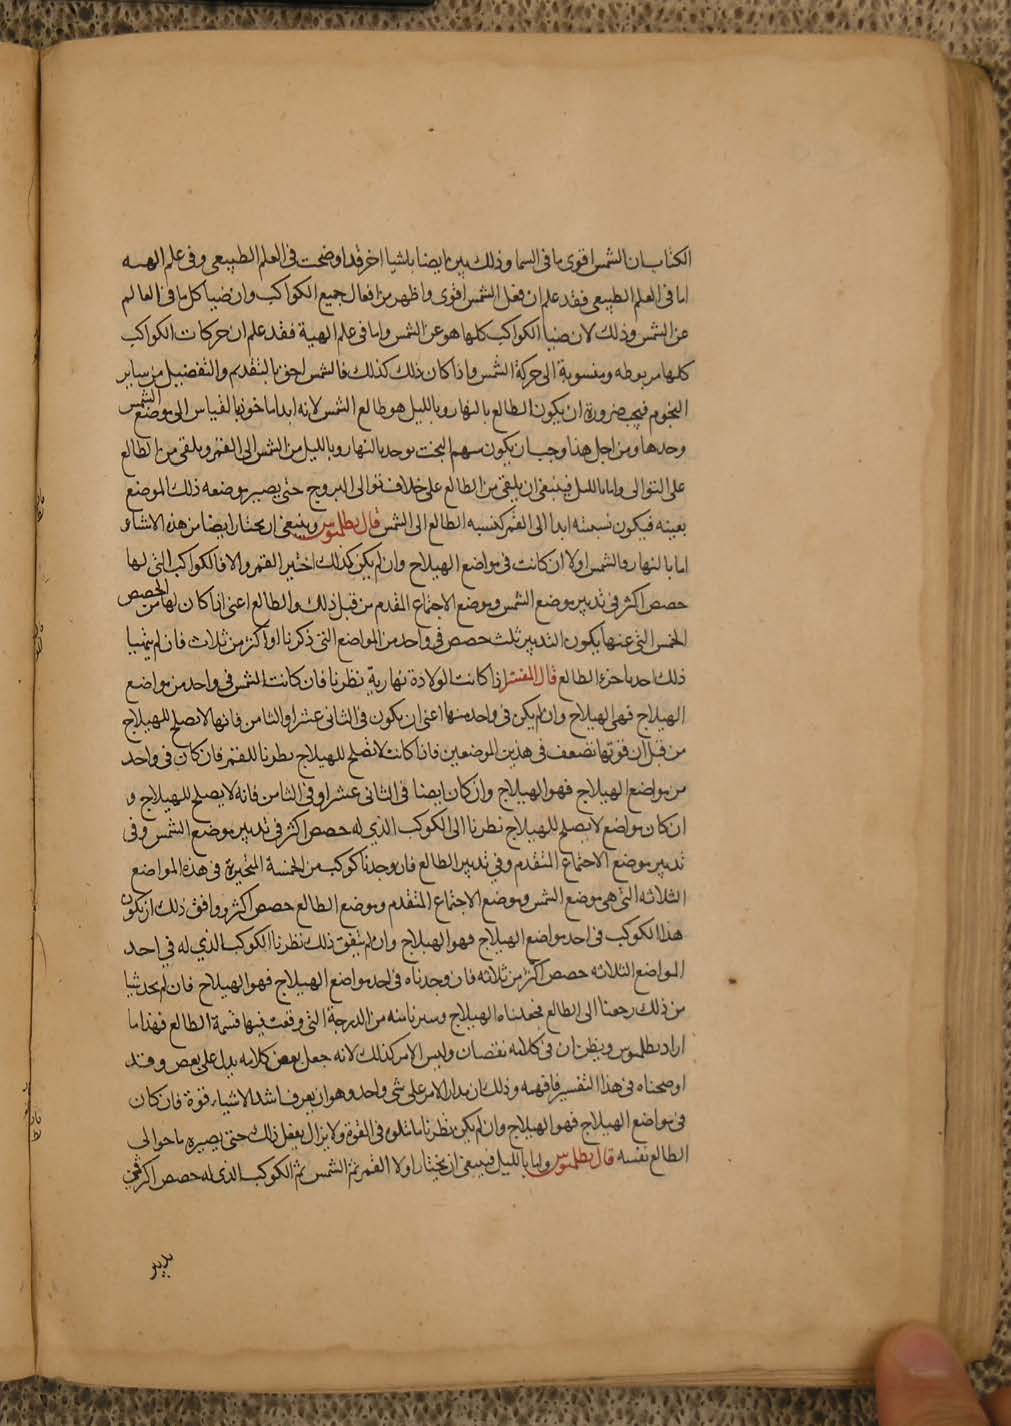 الكتاب ان الشمس اقوى ما فى السما وذلك بين ايضا باشيا اخر قد اوضحت فى العلم الطبيعى وفى علم الهيه
اما فى العلم الطبيعى فقد علم ان فعل الشمس اقوى واظهر من افعال جميع الكواكب وان ضيا كل ما فى العالم
عن الشمس وذلك لان ضيا الكواكب كلها هو عن الشمس واما فى علم الهية فقد علم ان حركات الكواكب
كلها مربوطه ومنسوبة الى حركة الشمس واذا كان ذلك كذلك فالشمس احق بالتقديم والتفضيل من ساير
النجوم فيجب ضرورة ان يكون الطالع بالنهار وبالليل هو طالع الشمس لانه ابدا ماخوذ بالقياس الى موضع الشمس
وحدها ومن اجل هذا وجب ان يكون سهم البخت يوخد بالنهار وبالليل من الشمس الى القمر ويلقى من الطالع
على التوالى واما بالليل فينبغى ان يلقى من الطالع على خلاف توالى البروج حتى يصير موضعه ذلك الموضع
بعينه فيكون نسبته ابدا الى القمر كنسبه الطالع الى الشمس قال بطلميوس وينبغى ان يختار ايضا من هذه الاشيا
اما بالنهار فالشمس اولا ان كانت فى مواضع الهيلاج وان لم يكن كذلك اختير القمر والا فالكواكب التى لها
حصص اكثر فى تدبير موضع الشمس وموضع الاجتماع المقدم من قبل ذلك والطالع اعنى اذا كان لها من الحصص
الخمس التى عنها يكون التدبير ثلث حصص فى واحد من المواضع التى ذكرنا او اكثر من ثلاث فان لم يتهيا
ذلك اخد باخرة الطالع قال المفسر اذا كانت الولادة نهارية نظرنا فان كانت الشمس فى واحد من مواضع
الهيلاج فهى الهيلاج وان لم يكن فى واحد منها اعنى ان يكون فى الثانى عشر او الثامن فانها لا تصلح للهيلاج
من قبل ان قوتها تضعف فى هذين الموضعين فاذا كانت لا تصلح للهيلاج نظرنا للقمر فان كان فى واحد
من مواضع الهيلاج فهو الهيلاج وان كان ايضا فى الثانى عشر او فى الثامن فانه لا يصلح للهيلاج و
ان كان مواضع لا يصلح للهيلاج نظرنا الى الكوكب الذي له حصص اكثر فى تدبير موضع الشمس وفى
تدبير موضع الاجتماع المتقدم وفي تدبير الطالع فان وجدنا كوكب من الخمسة المتحيرة فى هذه المواضع
الثلاثه التى هى موضع الشمس وموضع الاجتماع المتقدم وموضع الطالع حصص اكثر ووافق ذلك ان يكون
هذا الكوكب فى احد مواضع الهيلاج فهو الهيلاج وان لم يتفق ذلك نظرنا الكوكب الذي له في احد
المواضع الثلاثه حصص اكثر من ثلاثه فان وجدناه فى احد مواضع الهيلاج فهو الهيلاج فان لم نجد شيا
من ذلك رجعنا الى الطالع فجعلناه الهيلاج وسيرنا منه من الدرجة التى وقعت فيها قسمة الطالع فهذا ما
اراد بطلميوس ويظن ان فى كلامه نقصان وليس الامر كذلك لانه جعل بعض كلامه يدل على بعض وقد
اوضحناه فى هذا التفسير فافهمه وذلك ان مدار الامر على شى واحد وهو ان يعرف اشد الاشياء قوة فان كان
فى مواضع الهيلاج فهو الهيلاج وان لم يكن نظرنا ما يتلوه فى القوة ولا يزال يفعل ذلك حتى يصيره ما حوالى
الطالع نفسه قال بطلميوس واما بالليل فينبغى ان يختار اولا القمر ثم الشمس ثم الكوكب الذى له حصص اكثر فى